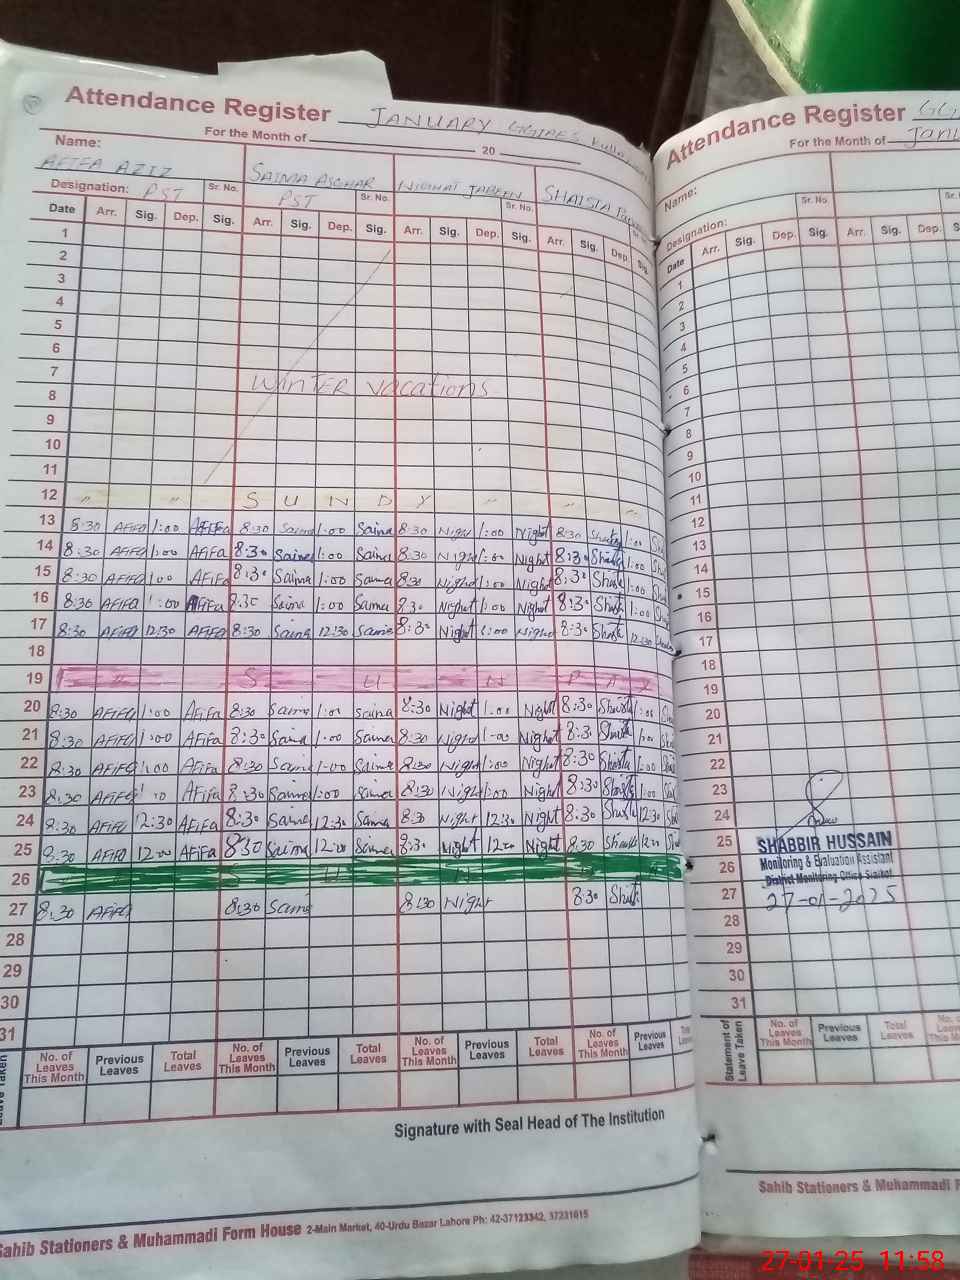 Attendance Register JANUARY
For the Month of 20
Name: AFIFA AZIZ SAIMA ASGHAR NIGHAT JABEEN SHAISTA
Designation: PST Sr. No. PST Sr. No. Sr. No.
Date Arr. Sig. Dep. Sig. Arr. Sig. Dep. Sig. Arr. Sig. Dep. Sig. Arr. Sig. Dep. Sig.
1
2
3
4
5
6
7
WINTER vacations
8
9
10
11
12 " " S U N D Y " "
13 8:30 AFIFA 1:00 AFIFa 8:30 Saima 1:00 Saima 8:30 Night 1:00 Night 8:30 1:00
14 8:30 AFIFA 1:00 AFIFa 8:30 Saima 1:00 Saima 8:30 Night 1:00 Night 8:30 1:00
15 8:30 AFIFA 1:00 AFIFa 8:30 Saima 1:00 Saima 8:30 Night 1:00 Night 8:30 1:00
16 8:30 AFIFA 1:00 AFIFa 8:30 Saima 1:00 Saima 8:30 Night 1:00 Night 8:30 1:00
17 8:30 AFIFA 12:30 AFIFa 8:30 Saima 12:30 Saima 8:30 Night 1:00 Night 8:30 12:30
18
19 S U N D A Y
20 8:30 AFIFA 1:00 AFIFa 8:30 Saima 1:00 Saima 8:30 Night 1:00 Night 8:30 1:00
21 8:30 AFIFA 1:00 AFIFa 8:30 Saima 1:00 Saima 8:30 Night 1-00 Night 8:30 1:00
22 8:30 AFIFA 1:00 AFIFa 8:30 Saima 1-00 Saima 8:30 Night 1:00 Night 8:30 1:00
23 8:30 AFIFA AFIFa 8:30 Saima 1:00 Saima 8:30 Night 1:00 Night 8:30 1:00
24 8:30 AFIFA 12:30 AFIFa 8:30 Saima 12:30 Saima 8:30 Night 12:30 Night 8:30 12:30
25 8:30 AFIFA 12:00 AFIFa 8:30 Saima 12:00 Saima 8:30 Night 12:00 Night 8:30 12:00
26
27 8:30 AFIFA 8:30 Saima 8:30 Night 8:30
28
29
30
31
No. of Leaves This Month Previous Leaves Total Leaves No. of Leaves This Month Previous Leaves Total Leaves No. of Leaves This Month Previous Leaves Total Leaves No. of Leaves This Month Previous Leaves
Signature with Seal Head of The Institution
Sahib Stationers & Muhammadi Form House 2-Main Market, 40-Urdu Bazar Lahore Ph: 42-37123342, 37231015
Attendance Register
For the Month of
Name: Sr. No.
Designation:
Date Arr. Sig. Dep. Sig. Arr. Sig. Dep.
1
2
3
4
5
6
7
8
9
10
11
12
13
14
15
16
17
18
19
20
21
22
23
24
25
26
27
28
29
30
31
SHABBIR HUSSAIN
Monitoring & Evaluation Assistant
District Monitoring Office Sialkot
27-01-2025
Statement of Leave Taken No. of Leaves This Month Previous Leaves Total Leaves
Sahib Stationers & Muhammadi
27-01-25 11:58